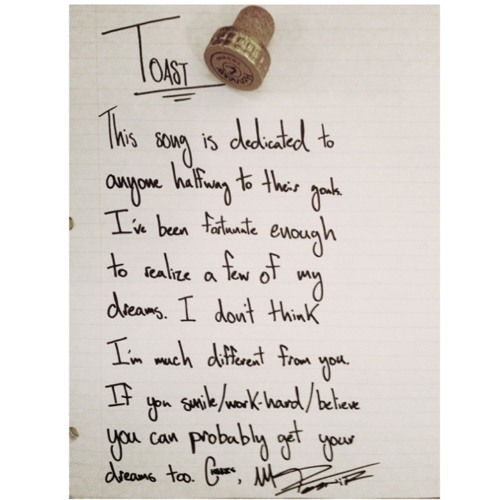 TOAST
This song is dedicated to
anyone halfway to their goals.
I've been fortunate enough
to realize a few of my
dreams. I don't think
I'm much different from you.
If you smile/work-hard/believe
you can probably get your
dreams too.